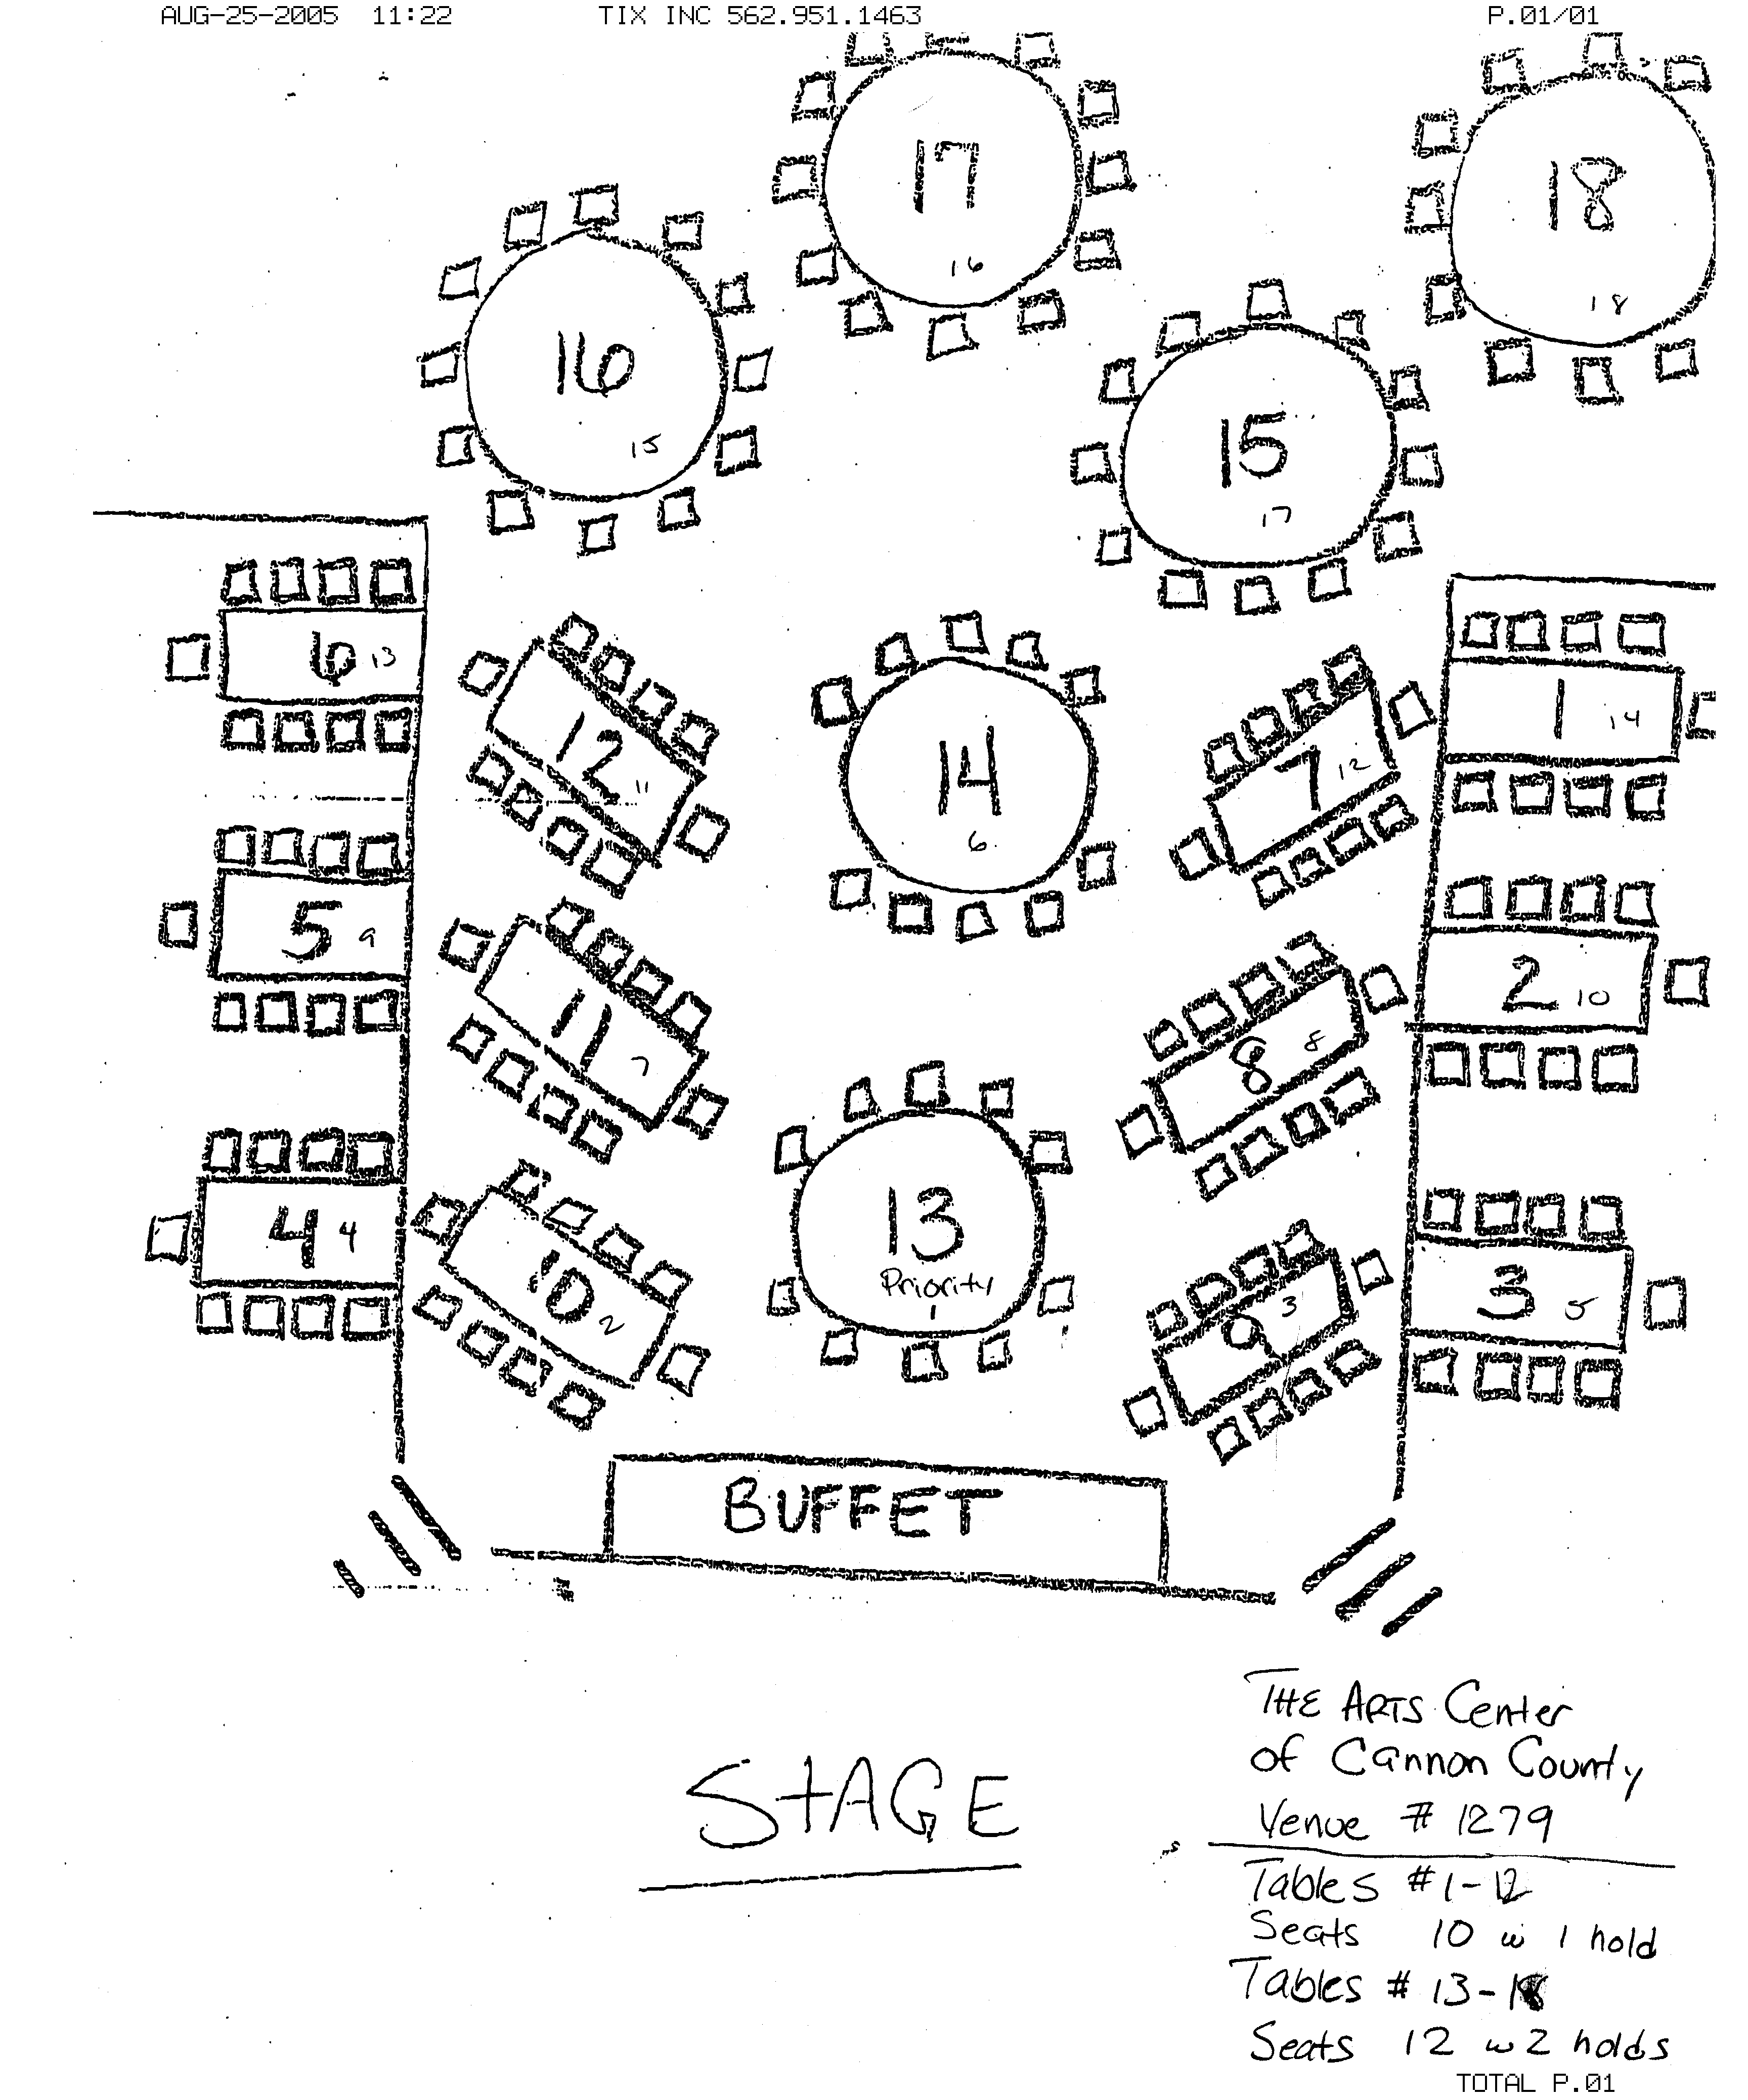 AUG-25-2005 11:22 TIX INC 562.951.1463 P.01/01
17
16
18
18
16
15
15
17
6 13
12 11
14
6
7 12
1 14
5 9
11 7
8 8
2 10
4 4
10 2
13
Priority
1
9 3
3 5
BUFFET
STAGE
THE ARTS Center
of Cannon County
Venue # 1279
Tables #1-12
Seats 10 w 1 hold
Tables # 13-18
Seats 12 w 2 holds
TOTAL P.01